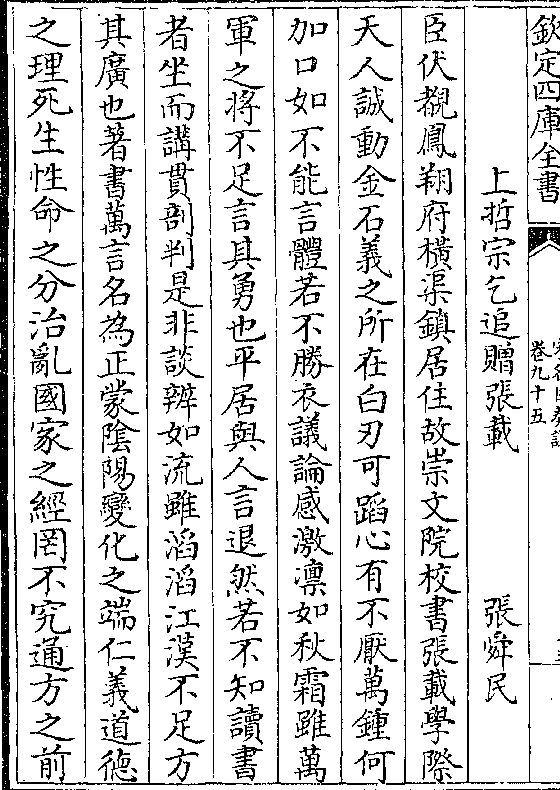 欽定四庫全書
卷九十五
上哲宗乞追贈張載 張舜民
臣伏覩鳳翔府橫渠鎮居住故崇文院校書張載學際
天人誠動金石義之所在白刃可蹈心有不厭萬鍾何
加口如不能言體若不勝衣議論感激凛如秋霜雖萬
軍之將不足言其勇也平居與人言退然若不知讀書
者坐而講貫剖判是非談辨如流雖滔滔江漢不足方
其廣也著書萬言名為正蒙隂陽變化之端仁義道德
之理死生性命之分治亂國家之經罔不究通方之前